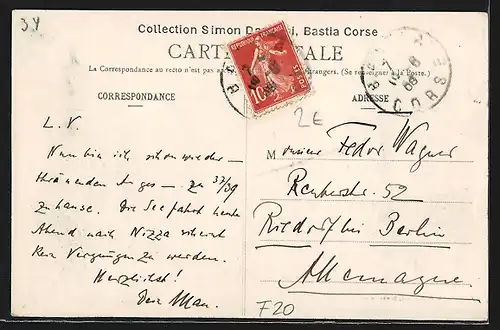 34
Collection Simon Da i, Bastia Corse
CARTE POSTALE
La Correspondance au recto n'est pas a étrangers. (Se renseigner à la Poste.)
CORRESPONDANCE
ADRESSE
REPUBLIQUE FRANÇAISE
10
POSTES
CORSE
2E
L. V.
Nun bin ich schon wieder –
thränenden Auges – zu
zuhause. Die Seefahrt heute
Abend nach Nizza scheint
kein Vergnügen zu werden.
Herzlichst!
Dein Max.
Monsieur Fedor Wagner
52
b/ Berlin
Allemagne
F20